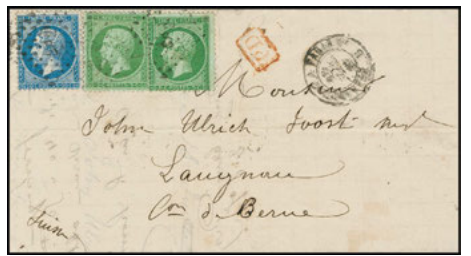 PD
PARIS
Monsieur
John Ulrich Joost
Langnau
Con de Berne
Suisse